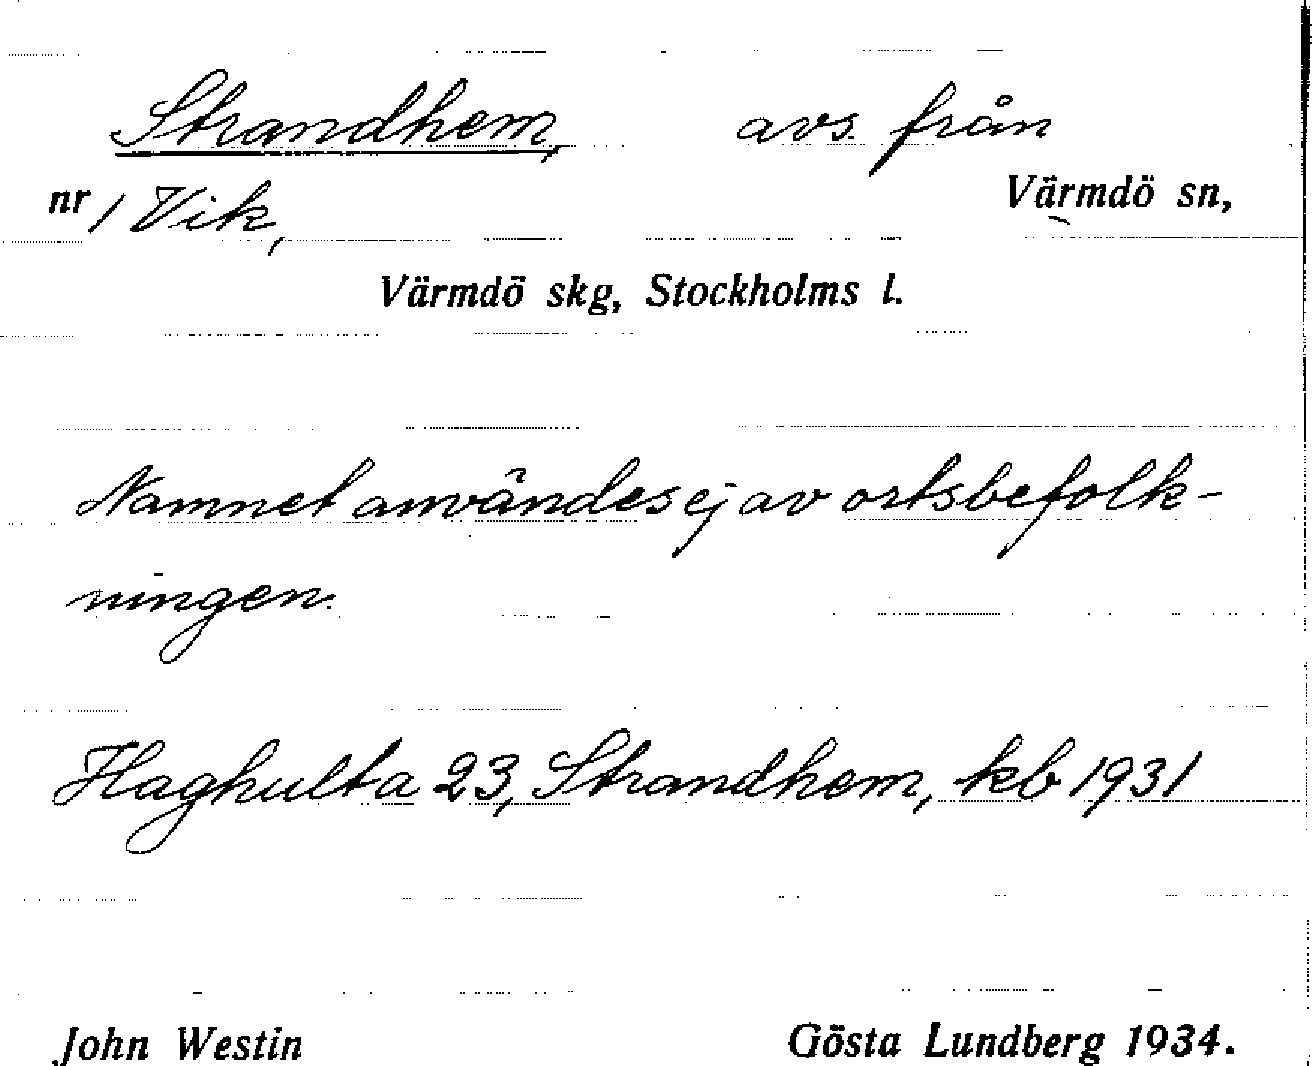 Strandhem, avs. från
nr 1 Vik, Värmdö sn,
Värmdö skg, Stockholms l.
Namnet användes ej av ortsbefolk-
ningen.
Haghulta 23, Strandhem, kb 1931
John Westin Gösta Lundberg 1934.